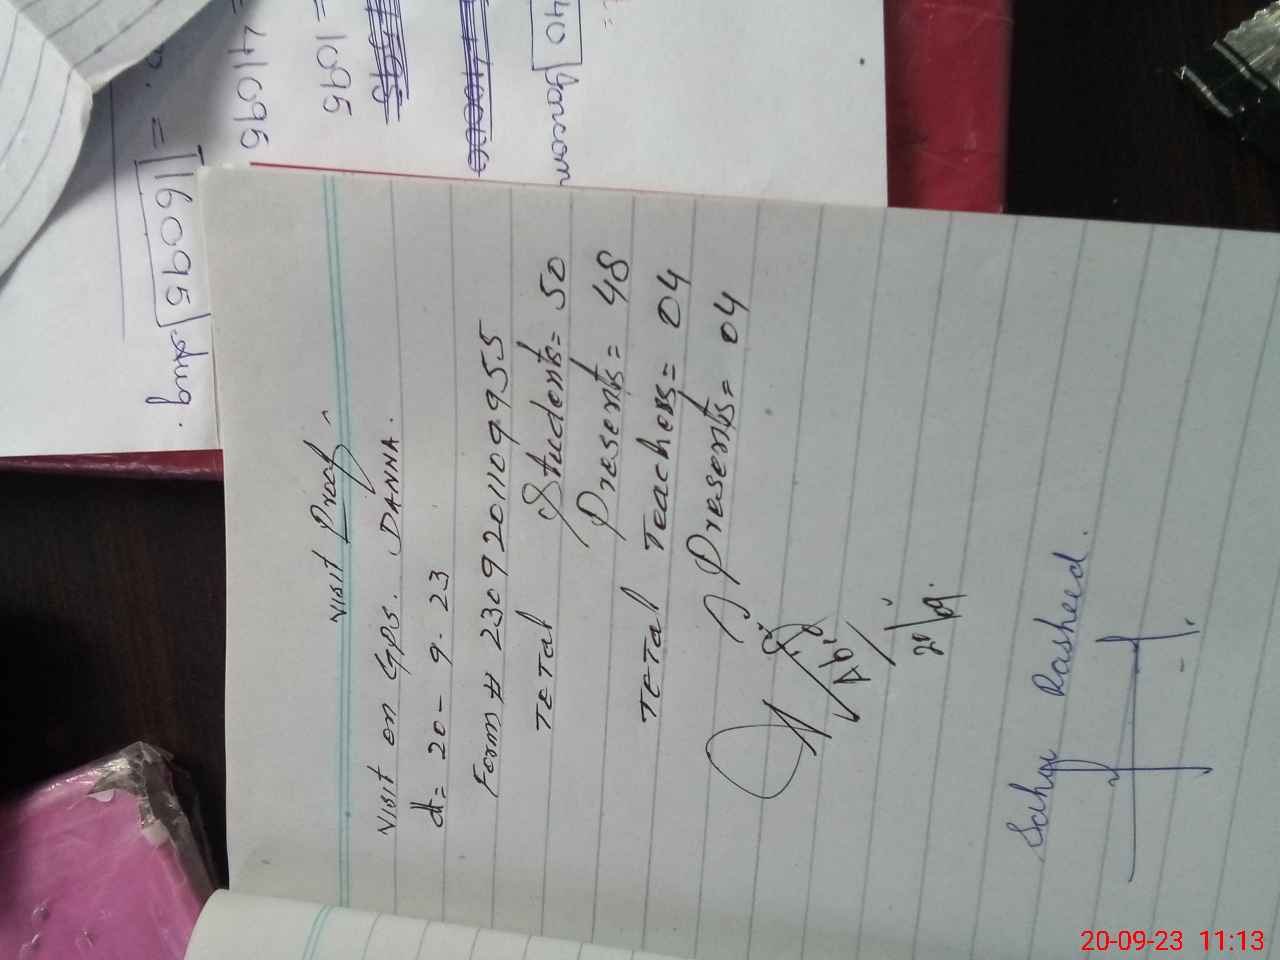 Visit Proof
Visit on GPS. DANNA.
dt = 20 - 9 - 23
Form # 2309201109955
TETal Students = 50
Presents = 48
TETal Teachers = 04
Presents = 04
Abid
20/9.
Rasheed.
= 41095
= 1095
40
= 16095
20-09-23 11:13